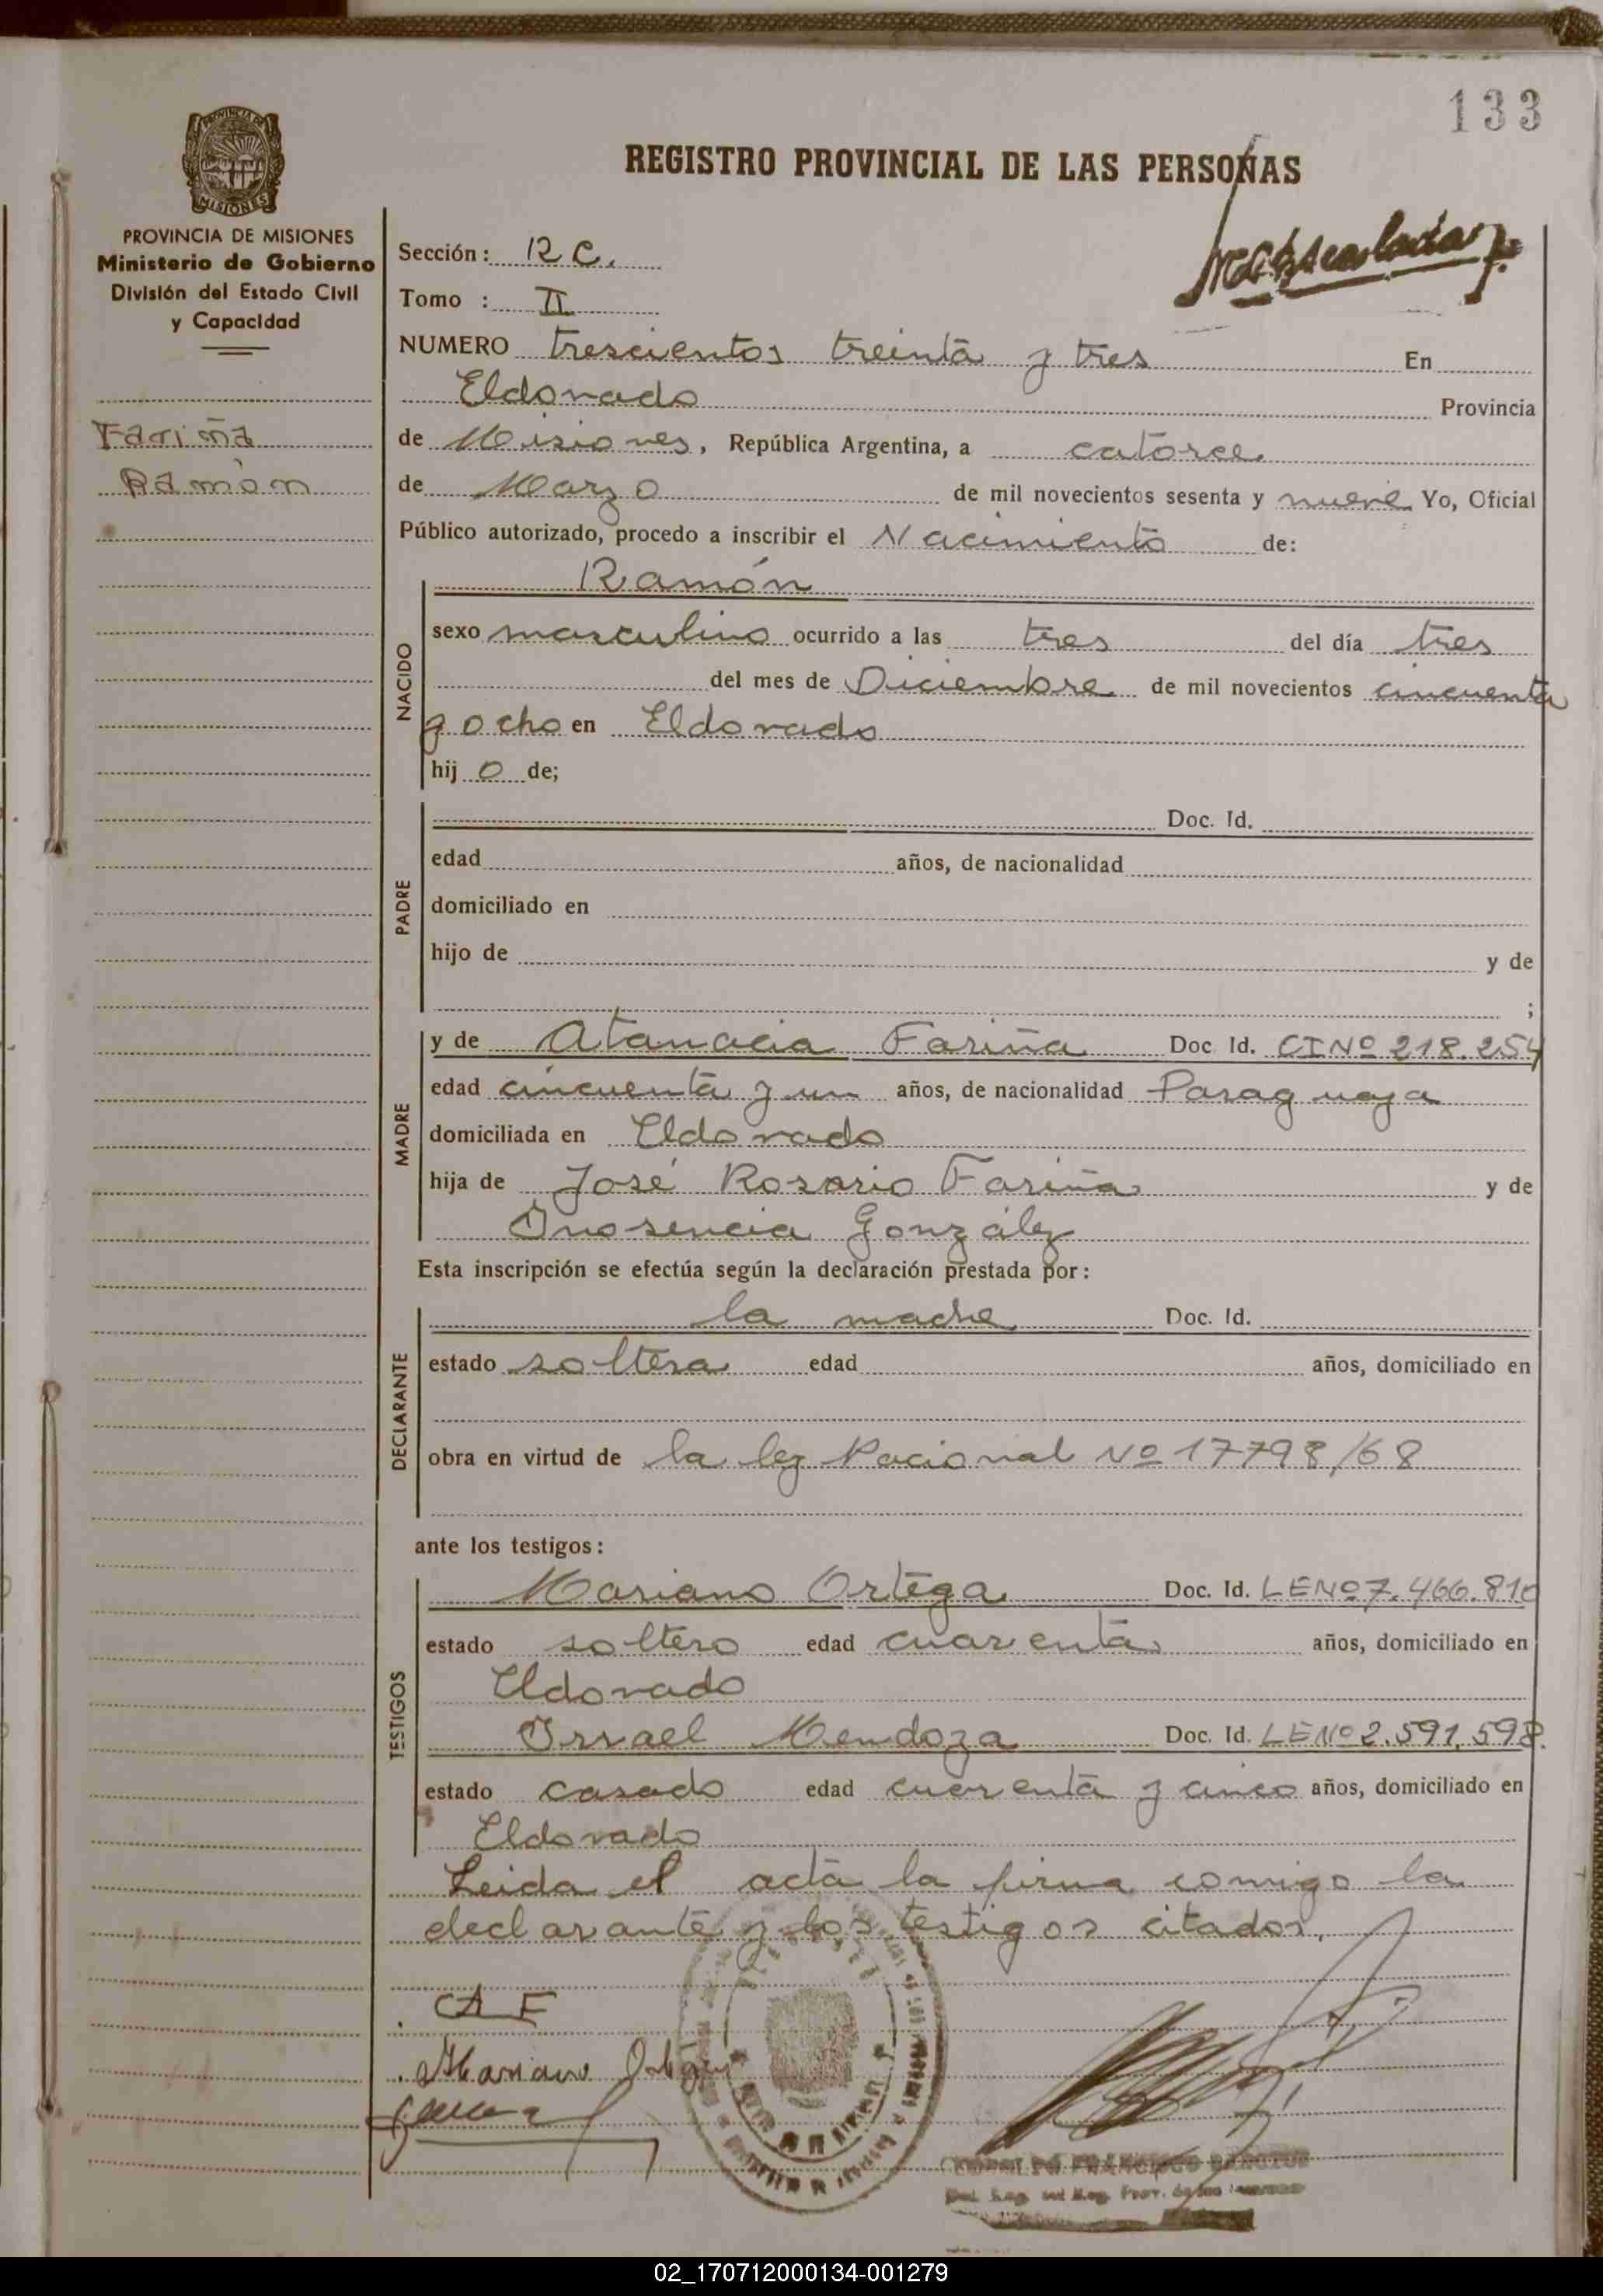 133
REGISTRO PROVINCIAL DE LAS PERSONAS
PROVINCIA DE MISIONES
Ministerio de Gobierno
División del Estado Civil
y Capacidad
Fariña
Ramòn
Sección: R C.
Tomo : II
NUMERO trescientos treinta y tres En
Eldorado Provincia
de Misiones, República Argentina, a catorce
de Marzo de mil novecientos sesenta y nueve Yo, Oficial
Público autorizado, procedo a inscribir el Nacimiento de:
NACIDO
Ramón
sexo masculino ocurrido a las tres del día tres
del mes de Diciembre de mil novecientos cincuenta
y ocho en Eldorado
hij o de;
PADRE
Doc. Id.
edad años, de nacionalidad
domiciliado en
hijo de y de
;
MADRE
y de Atanacia Fariña Doc Id. CI Nº 218.254
edad cincuenta y un años, de nacionalidad Paraguaya
domiciliada en Eldorado
hija de José Rosario Fariña y de
Inosencia González
Esta inscripción se efectúa según la declaración prestada por:
DECLARANTE
la madre Doc. Id.
estado soltera edad años, domiciliado en
obra en virtud de la ley Nacional Nº 17798/68
ante los testigos:
TESTIGOS
Mariano Ortega Doc. Id. LE Nº 7.466.810
estado soltero edad cuarenta años, domiciliado en
Eldorado
Isrrael Mendoza Doc. Id. LE Nº 2.591.598.
estado casado edad cuarenta y cinco años, domiciliado en
Eldorado
Leida el acta la firma comigo la
declarante y los testigos citados.
Mariano
02_170712000134-001279